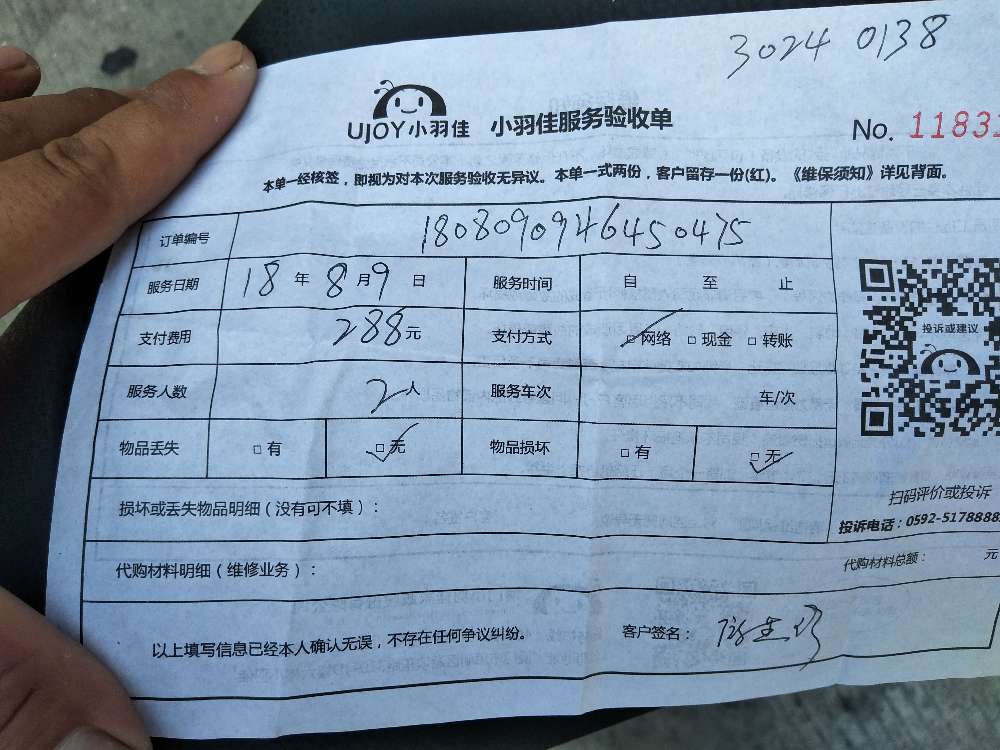 3024 0138
UJOY小羽佳 小羽佳服务验收单 No. 11831
本单一经核签，即视为对本次服务验收无异议。本单一式两份，客户留存一份(红)。《维保须知》详见背面。
订单编号 180809094646450475
服务日期 18 年 8 月 9 日 服务时间 自 至 止
支付费用 288元 支付方式 ☑网络 □现金 □转账
投诉或建议
服务人数 2人 服务车次 车/次
物品丢失 □有 ☑无 物品损坏 □有 ☑无
损坏或丢失物品明细（没有可不填）：
扫码评价或投诉
投诉电话：0592-5178888
代购材料明细（维修业务）： 代购材料总额： 元
以上填写信息已经本人确认无误，不存在任何争议纠纷。 客户签名：